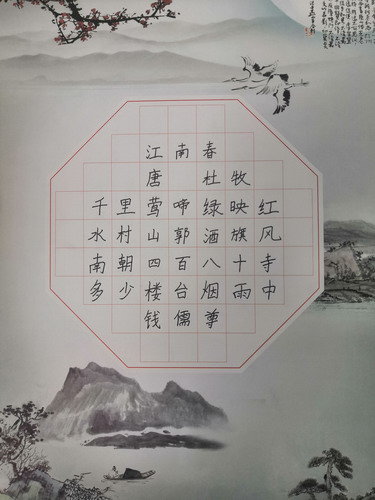 江南春
唐 杜牧
千里莺啼绿映红
水村山郭酒旗风
南朝四百八十寺
多少楼台烟雨中
钱儒尊